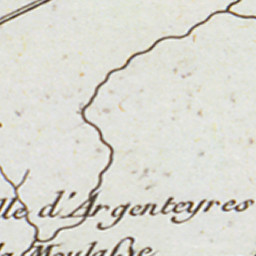 lle d'Argenteyres
la Moulasse